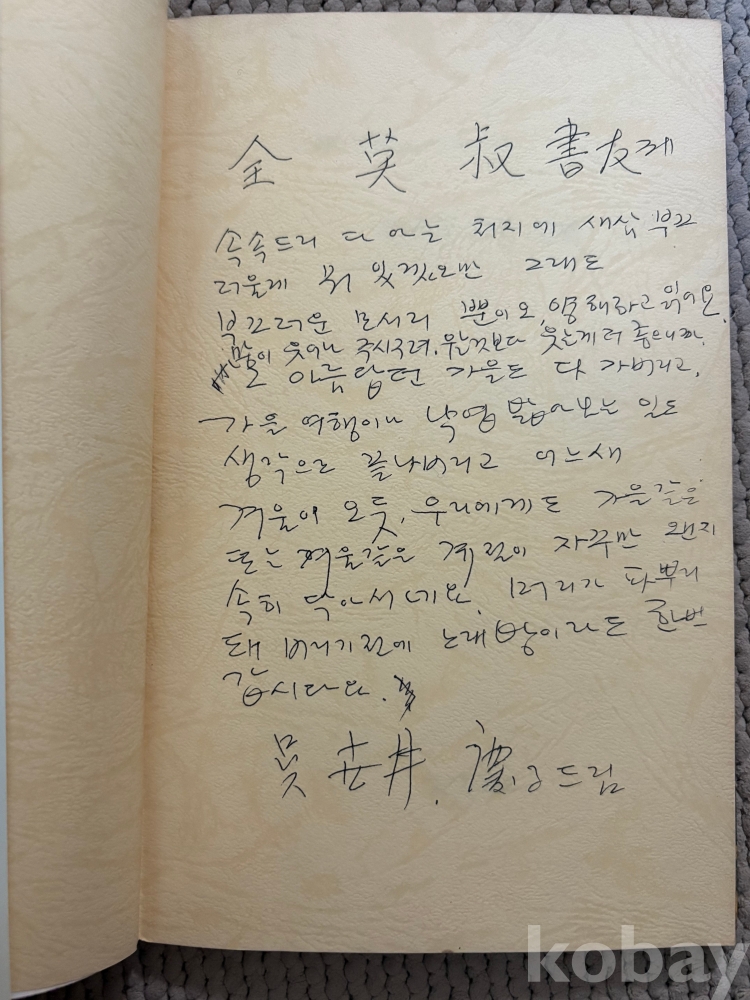 全 英 叔 書友께
속속드리 다 아는 처지에 새삼 부끄
러울게 뭐 있겠오만 그래도
부끄러운 모서리 뿐이오. 양해하고 읽어요.
많이 웃어나 주시구려. 울것보다 웃는게 더 좋으니까.
아름답던 가을도 다 가버리고,
가을 여행이나 낙엽 밟아보는 일도
생각으로 끝나버리고 어느새
겨울이 오듯, 우리에게도 가을같은
또는 겨울같은 계절이 자꾸만 왠지
속히 닥아서네요. 머리가 파뿌리
돼 버리기전에 노래방이라도 한번
갑시다요.
吳世井. 드림
kobay